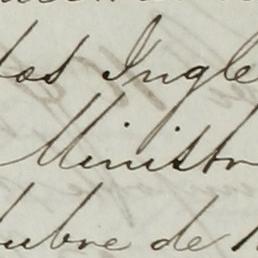 los Ingle
Ministr
tubre de